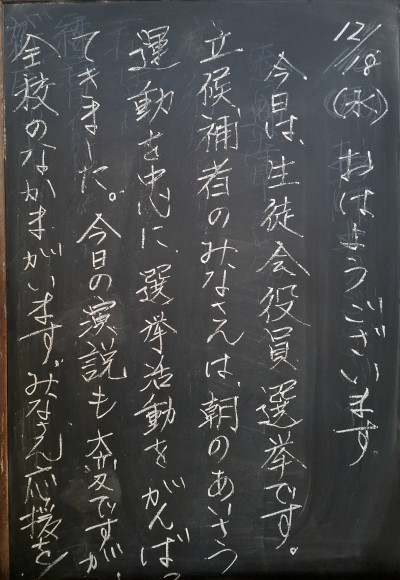 12/18(水) おはようございます
今日は、生徒会役員選挙です。
立候補者のみなさんは、朝のあいさつ
運動を中心に、選挙活動をがんばっ
てきました。今日の演説も大変ですが、
全校のなかまがいます。みなさん応援を